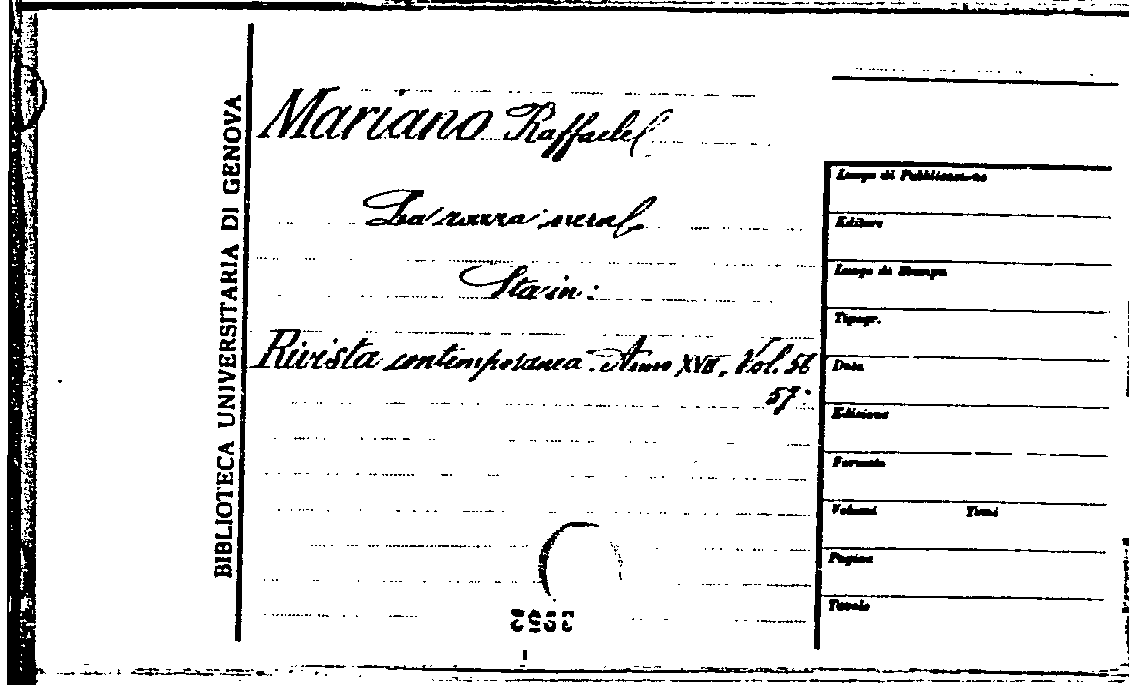 BIBLIOTECA UNIVERSITARIA DI GENOVA
Mariano Raffaele
La razza nera
Sta in:
Rivista contemporanea. Anno XVII, Vol. 56
57.
Luogo di Pubblicazione
Editore
Luogo di Stampa
Tipogr.
Data
Edizione
Formato
Volumi Tomi
Pagine
Tavole